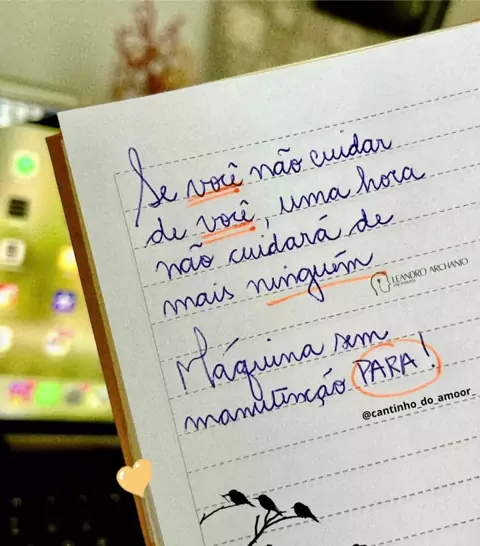 Se você não cuidar
de você, uma hora
não cuidará de
mais ninguém
LEANDRO ARCHANJO
Máquina sem
manutenção PARA!
@cantinho_do_amoor_